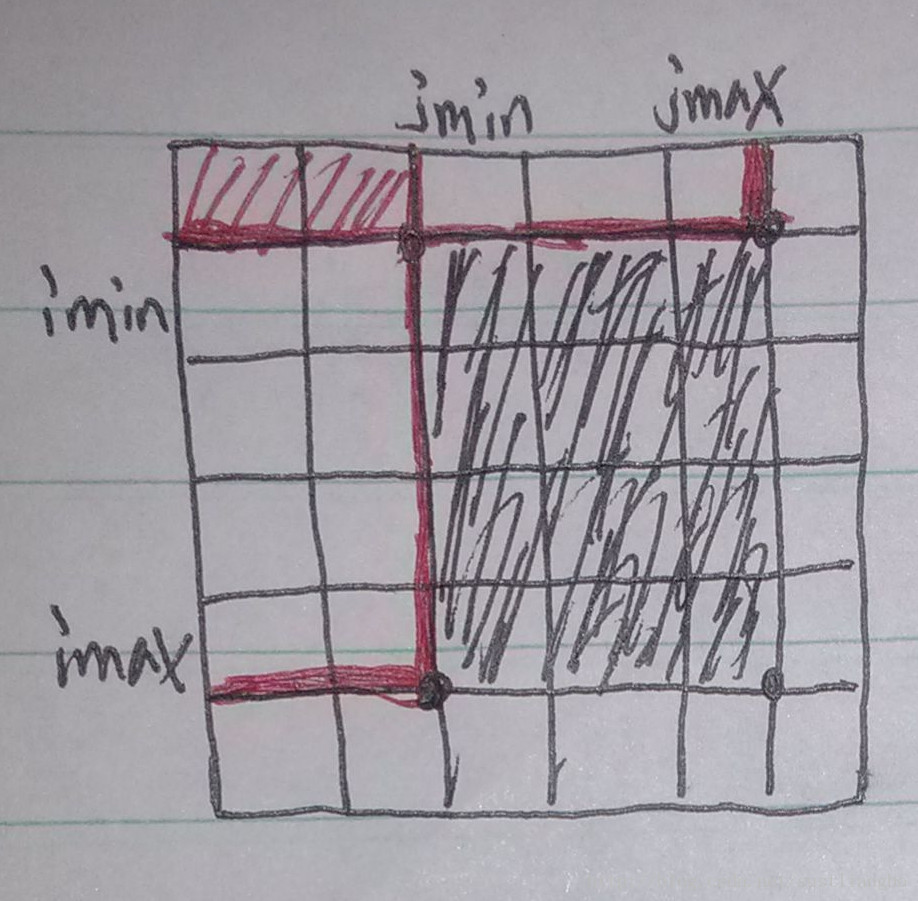 jmin jmax
imin
imax